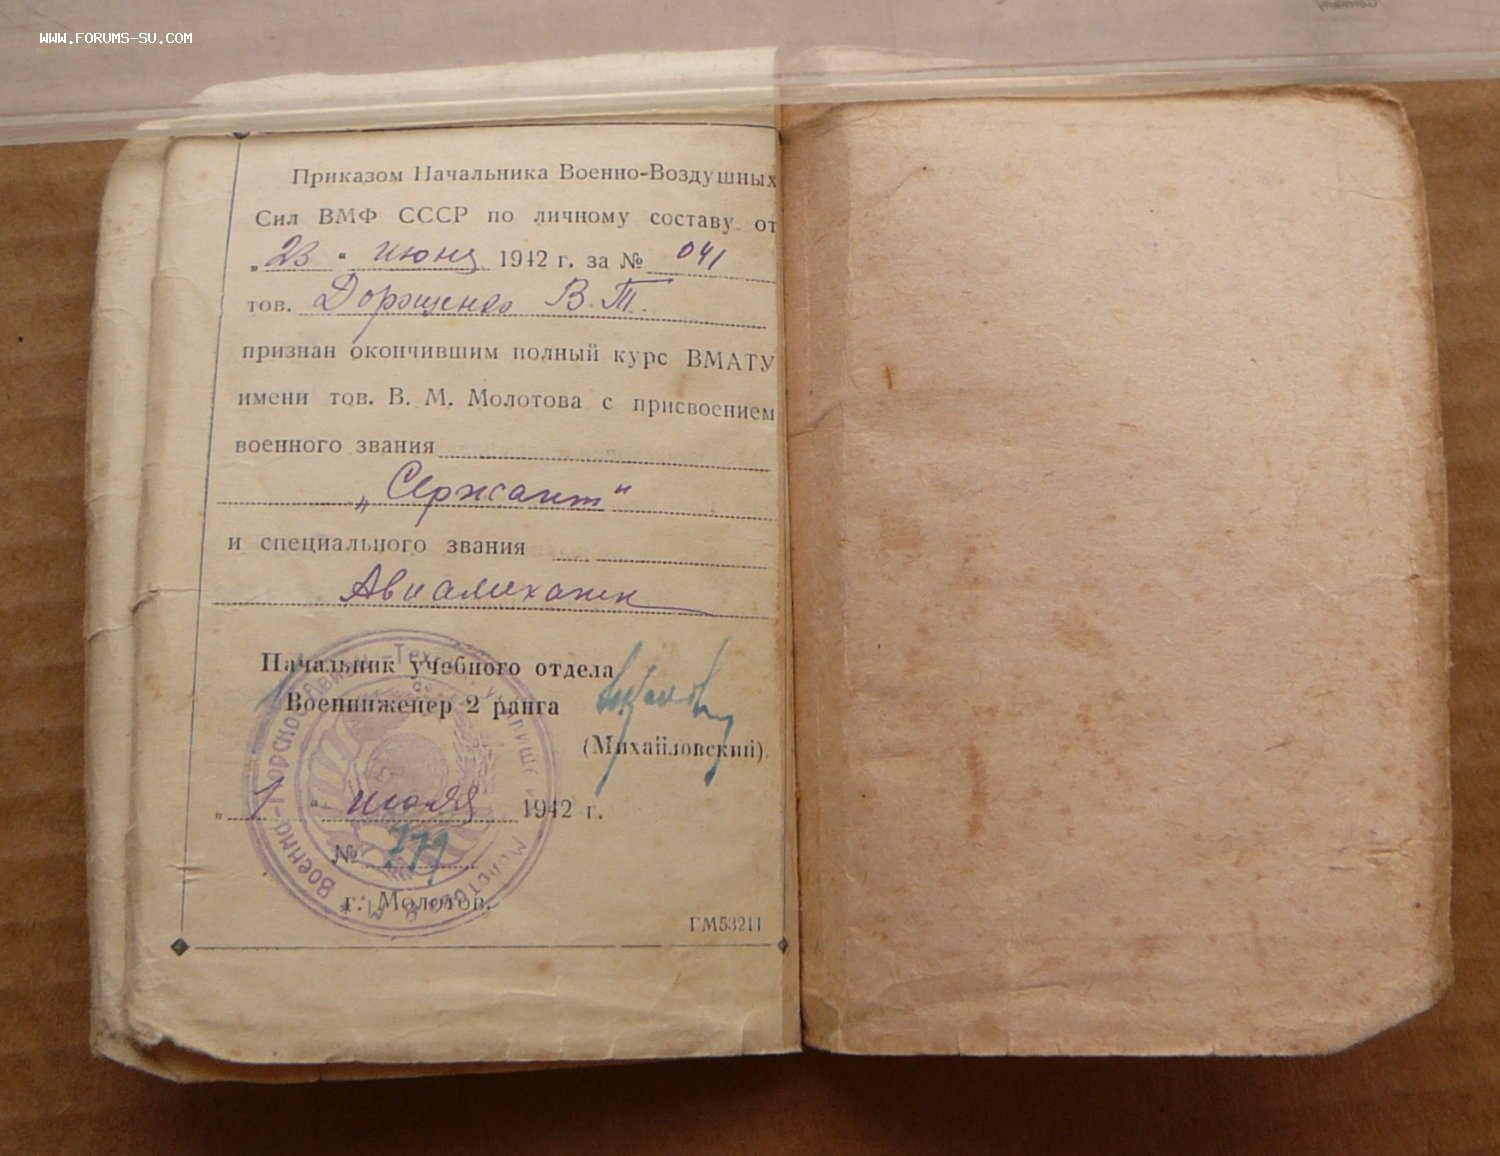 WWW.FORUMS-SU.COM
Germany
Приказом Начальника Военно-Воздушных
Сил ВМФ СССР по личному составу от
„23“ июня 1942 г. за № 041
тов. Дорощенко В. Т.
признан окончившим полный курс ВМАТУ
имени тов. В. М. Молотова с присвоением
военного звания
„Сержант“
и специального звания
Авиамеханик
Начальник учебного отдела
Военинженер 2 ранга
(Михайловский).
„1“ июля 1942 г.
№ 779
г. Молотов.
ГМ53211
Военно-Морское Авиа-Техн. училище
Молотова